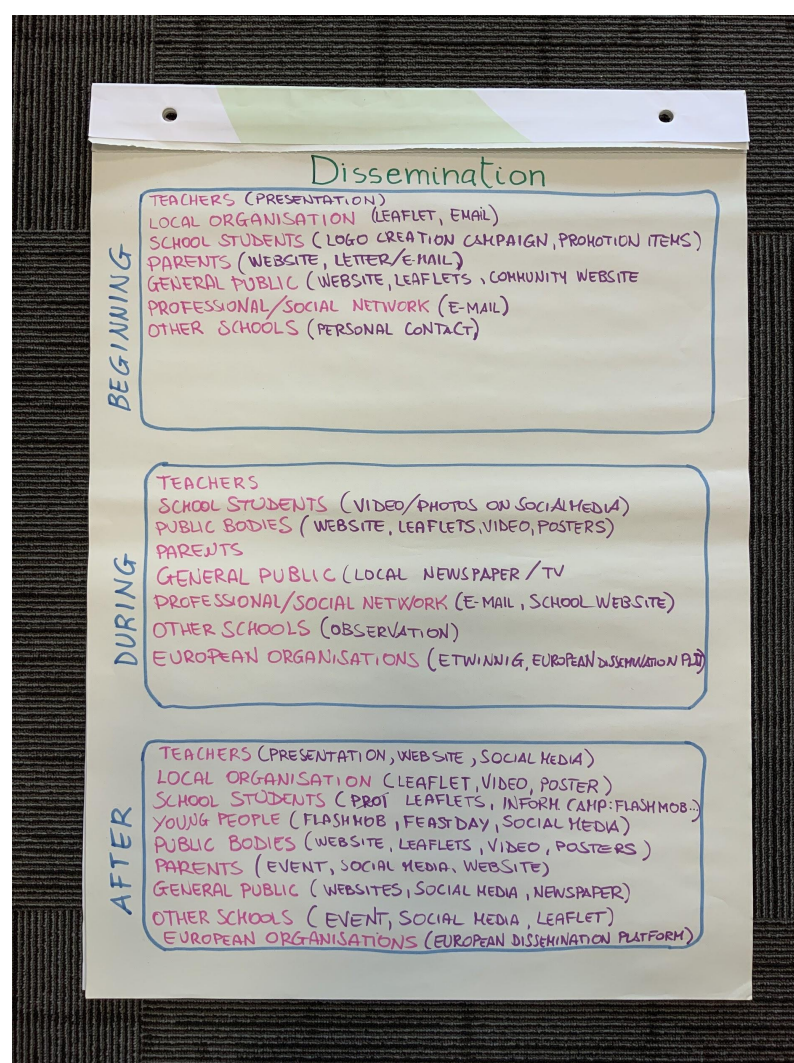 Dissemination
BEGINNING
TEACHERS (PRESENTATION)
LOCAL ORGANISATION (LEAFLET, EMAIL)
SCHOOL STUDENTS (LOGO CREATION CAMPAIGN, PROMOTION ITEMS)
PARENTS (WEBSITE, LETTER/E-MAIL)
GENERAL PUBLIC (WEBSITE, LEAFLETS, COMMUNITY WEBSITE
PROFESSIONAL/SOCIAL NETWORK (E-MAIL)
OTHER SCHOOLS (PERSONAL CONTACT)
DURING
TEACHERS
SCHOOL STUDENTS (VIDEO/PHOTOS ON SOCIAL MEDIA)
PUBLIC BODIES (WEBSITE, LEAFLETS, VIDEO, POSTERS)
PARENTS
GENERAL PUBLIC (LOCAL NEWSPAPER/TV
PROFESSIONAL/SOCIAL NETWORK (E-MAIL, SCHOOL WEBSITE)
OTHER SCHOOLS (OBSERVATION)
EUROPEAN ORGANISATIONS (ETWINNIG, EUROPEAN DISSEMINATION
AFTER
TEACHERS (PRESENTATION, WEBSITE, SOCIAL MEDIA)
LOCAL ORGANISATION (LEAFLET, VIDEO, POSTER)
SCHOOL STUDENTS (PROT LEAFLETS, INFORM CAMP: FLASHMOB..)
YOUNG PEOPLE (FLASHMOB, FEASTDAY, SOCIAL MEDIA)
PUBLIC BODIES (WEBSITE, LEAFLETS, VIDEO, POSTERS)
PARENTS (EVENT, SOCIAL MEDIA, WEBSITE)
GENERAL PUBLIC (WEBSITES, SOCIAL MEDIA, NEWSPAPER)
OTHER SCHOOLS (EVENT, SOCIAL MEDIA, LEAFLET)
EUROPEAN ORGANISATIONS (EUROPEAN DISSEMINATION PLATFORM)